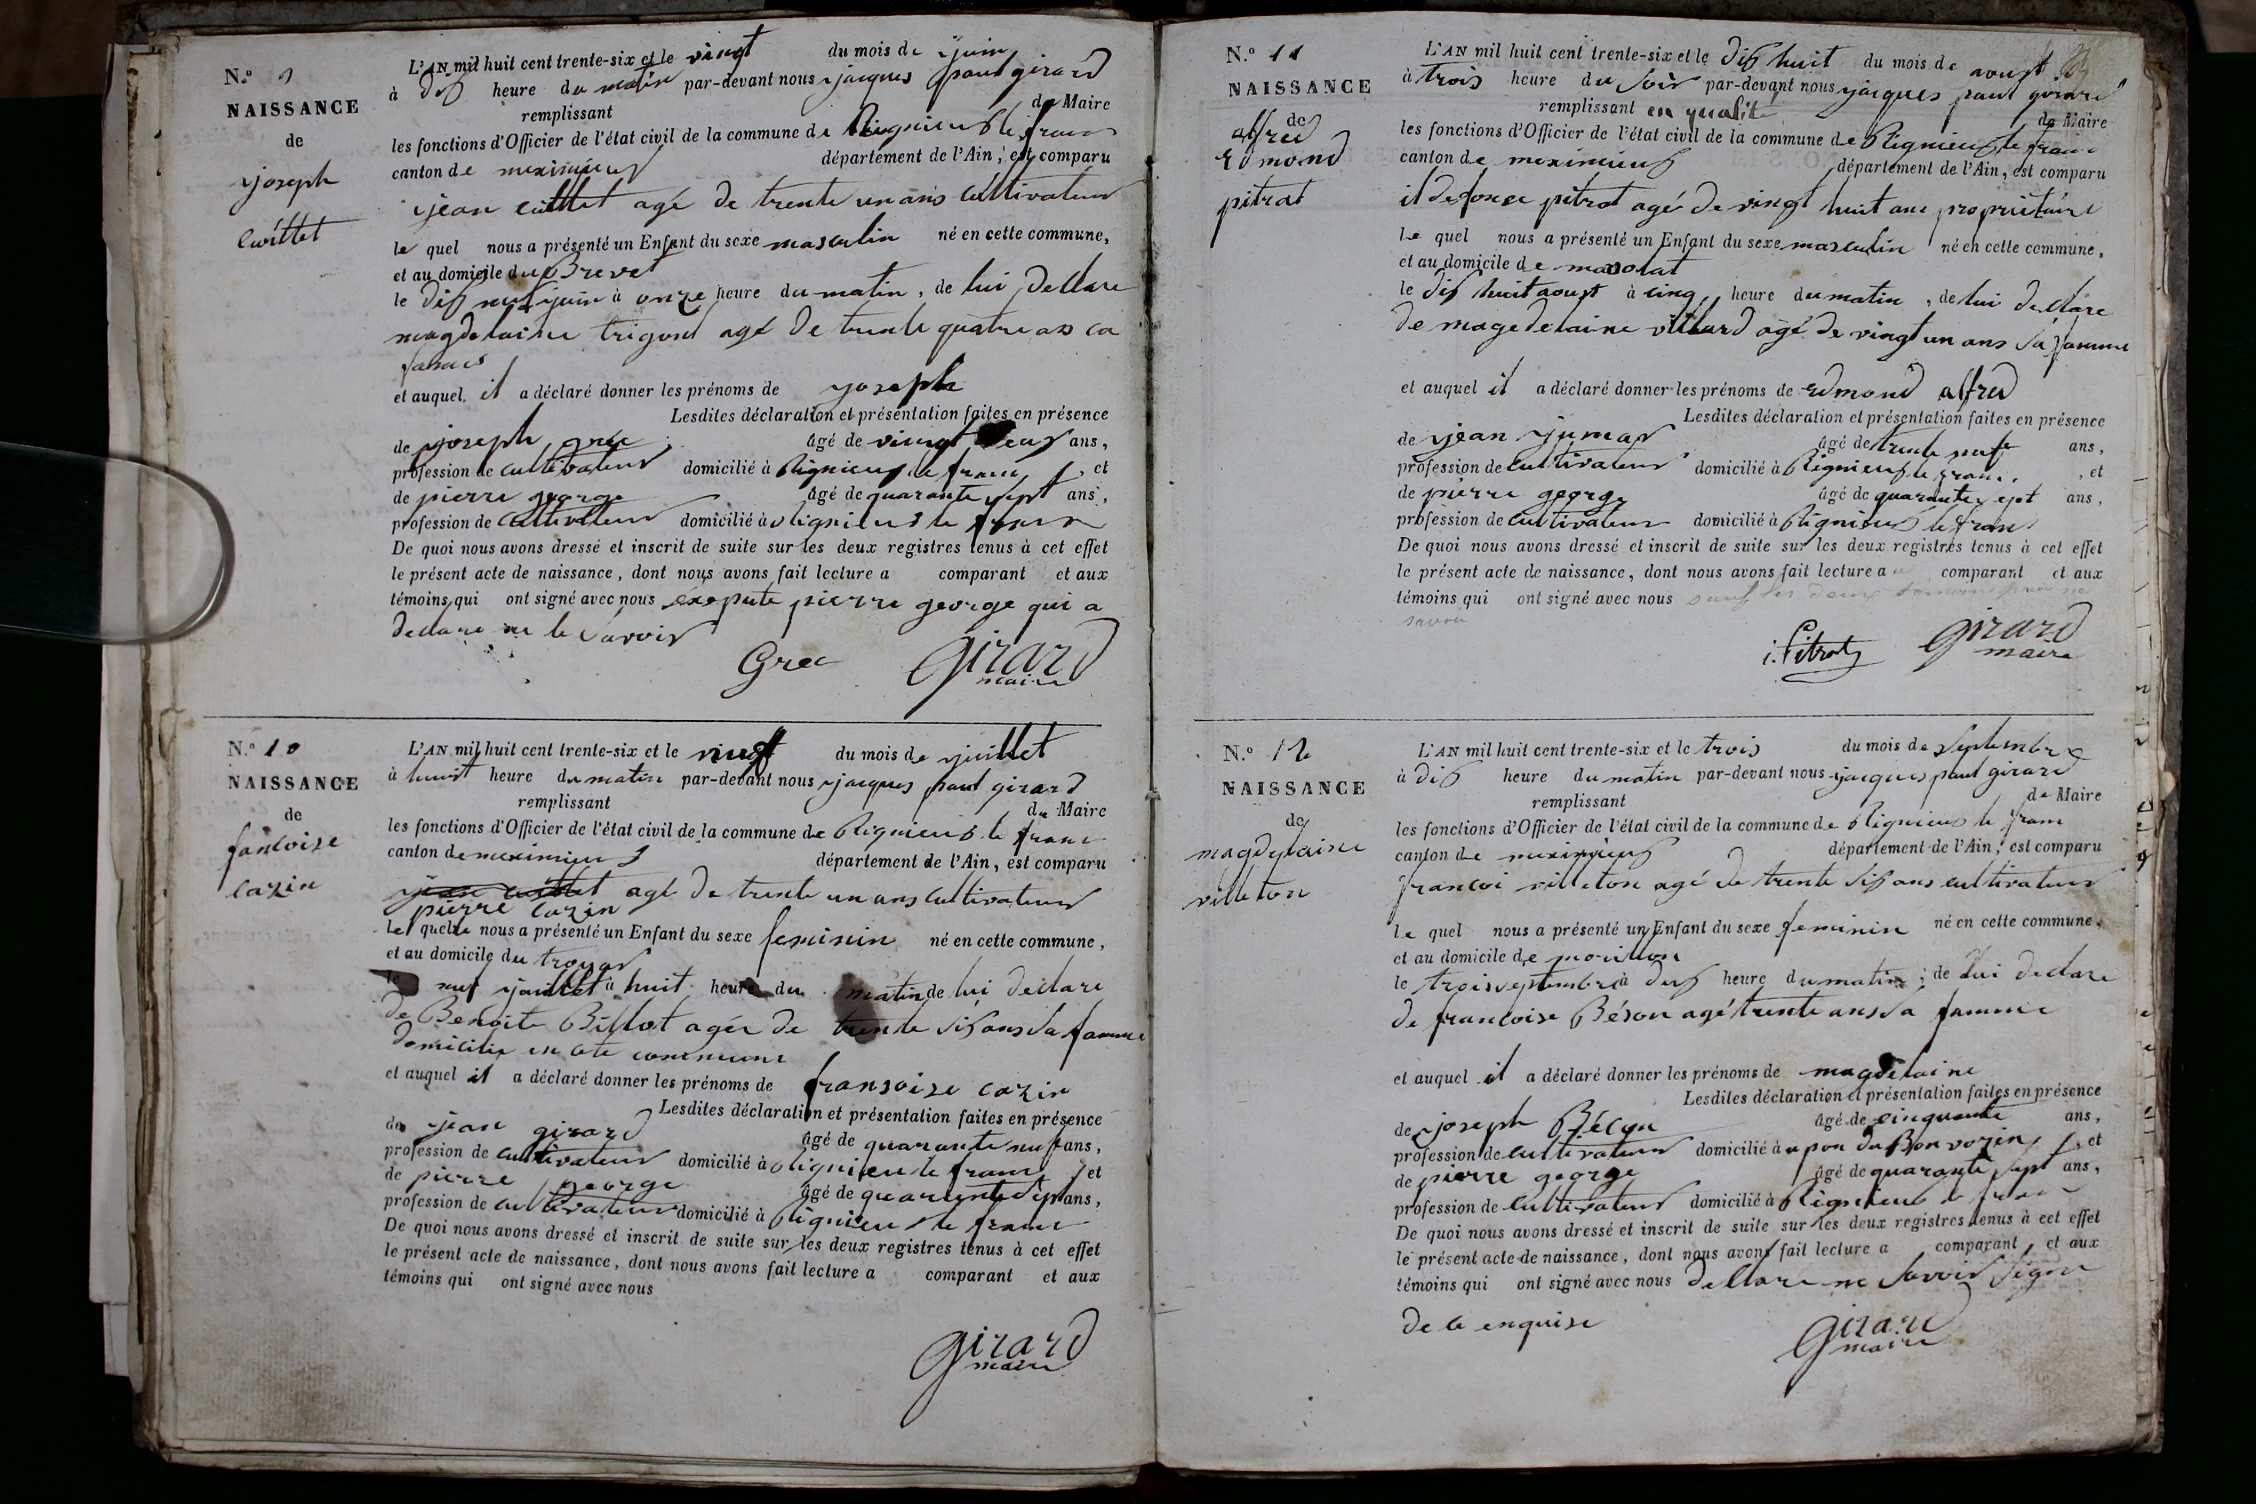 N.º 9
NAISSANCE
de
joseph
cuillet
L'AN mil huit cent trente-six et le vingt du mois de juin
à dix heure du matin par-devant nous jacques paul girard
remplissant de Maire
les fonctions d'Officier de l'état civil de la commune de Rignieux le franc
canton de meximieux département de l'Ain, est comparu
jean cuillet agé de trente un ans cultivateur
le quel nous a présenté un Enfant du sexe masculin né en cette commune,
et au domicile du Brevet
le dix neuf juin à onze heure du matin, de lui declare
magdelaine trigont agé de trente quatre ans sa
famme
et auquel il a déclaré donner les prénoms de joseph
Lesdites déclaration et présentation faites en présence
de joseph grec âgé de vingt ans,
profession de cultivateur domicilié à Rignieux le franc, et
de pierre george âgé de quarante sept ans,
profession de cultivateur domicilié à Rignieux le franc
De quoi nous avons dressé et inscrit de suite sur les deux registres tenus à cet effet
le présent acte de naissance, dont nous avons fait lecture a comparant et aux
témoins qui ont signé avec nous exepute pierre george qui a
declare ne le savoir
Grec Girard
maire
N.º 10
NAISSANCE
de
fancoise
cazin
L'AN mil huit cent trente-six et le neuf du mois de juillet
à heure du matin par-devant nous jacques paul girard
remplissant du Maire
les fonctions d'Officier de l'état civil de la commune de Rignieux le franc
canton de meximieux département de l'Ain, est comparu
jean cuillet agé de trente un ans cultivateur
pierre cazin
le quel nous a présenté un Enfant du sexe feminin né en cette commune,
et au domicile du
le neuf juillet à huit heure du matin de lui declare
de Benoite Billot agée de trente six ans sa famme
domicilie en cete commune
et auquel il a déclaré donner les prénoms de fransoise cazin
Lesdites déclaration et présentation faites en présence
de jean girard âgé de quarante neuf ans,
profession de cultivateur domicilié à Rignieu le franc et
de pierre george âgé de quarente sept ans,
profession de cultivateur domicilié à Rignieux le franc
De quoi nous avons dressé et inscrit de suite sur les deux registres tenus à cet effet
le présent acte de naissance, dont nous avons fait lecture a comparant et aux
témoins qui ont signé avec nous
Girard
maire
N.º 11
NAISSANCE
de
alfred
Edmond
pitrat
L'AN mil huit cent trente-six et le dix huit du mois de aoust
à trois heure du soir par-devant nous jacques paul girard
remplissant en qualité de Maire
les fonctions d'Officier de l'état civil de la commune de Rignieux le franc
canton de meximieux département de l'Ain, est comparu
ildefonce pitrat agé de vingt huit ans propriétaire
le quel nous a présenté un Enfant du sexe masculin né en cette commune,
et au domicile de
le dix huit aoust à cinq heure du matin, de lui declare
de magedelaine villard agé de vingt un ans sa famme
et auquel il a déclaré donner les prénoms de Edmond alfred
Lesdites déclaration et présentation faites en présence
de jean âgé de trente neuf ans,
profession de cultivateur domicilié à Rignieux le franc, et
de pierre george âgé de quarante sept ans,
profession de cultivateur domicilié à Rignieux le franc
De quoi nous avons dressé et inscrit de suite sur les deux registres tenus à cet effet
le présent acte de naissance, dont nous avons fait lecture a comparant et aux
témoins qui ont signé avec nous sauf les deux temoins pour ne
savoir
i. Pitrat Girard
maire
N.º 12
NAISSANCE
de
magdelaine
villeton
L'AN mil huit cent trente-six et le trois du mois de septembre
à dix heure du matin par-devant nous jacques paul girard
remplissant de Maire
les fonctions d'Officier de l'état civil de la commune de Rignieux le franc
canton de meximieux département de l'Ain, est comparu
francoi villeton agé de trente six ans cultivateur
le quel nous a présenté un Enfant du sexe feminin né en cette commune,
et au domicile de mouillon
le trois septembre à deux heure du matin, de lui declare
de francoise Béson agé trente ans sa famme
et auquel il a déclaré donner les prénoms de magdelaine
Lesdites déclaration et présentation faites en présence
de joseph âgé de cinquante ans,
profession de cultivateur domicilié à et
de pierre george âgé de quarante sept ans,
profession de cultivateur domicilié à Rignieux le franc
De quoi nous avons dressé et inscrit de suite sur les deux registres tenus à cet effet
le présent acte de naissance, dont nous avons fait lecture a comparant, et aux
témoins qui ont signé avec nous declare ne savoir signer
de ce enquise
Girard
maire